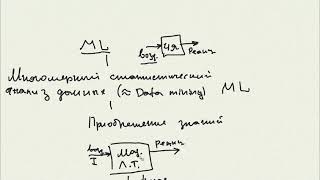 ML
возд. ЧЯ реакц.
Многомерный статистический
анализ данных (≈ Data mining) ML
Приобретение знаний
возд. I Л.Т. реакц.